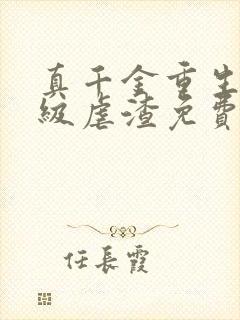 真千金重生
級虐渣免費
任長霞